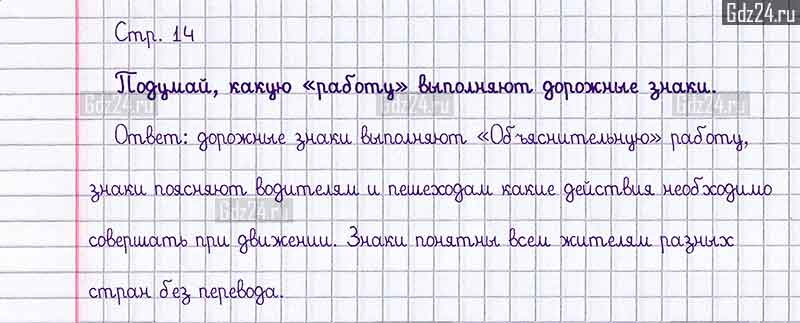 Gdz24.ru
Стр. 14
Подумай, какую «работу» выполняют дорожные знаки.
Gdz24.ru Gdz24.ru Gdz24.ru
Ответ: дорожные знаки выполняют «Объяснительную» работу,
знаки поясняют водителям и пешеходам какие действия необходимо
Gdz24.ru
совершать при движении. Знаки понятны всем жителям разных
стран без перевода.